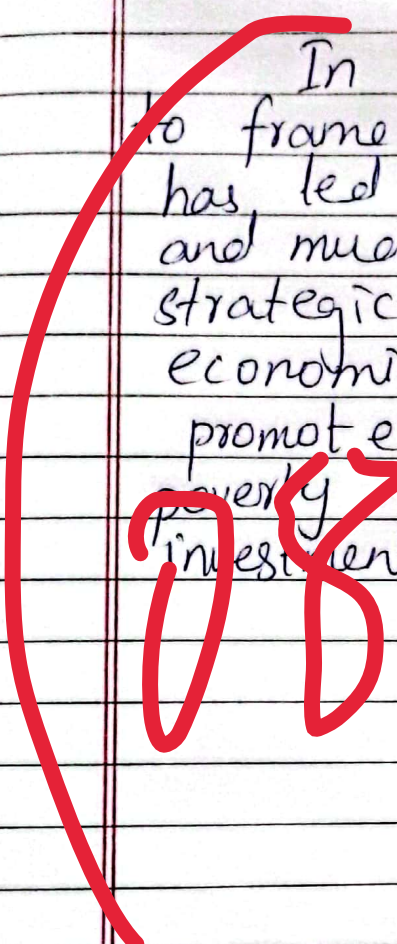 In
to frame
has led
and muc
strategic
economi
promote
poverty
investmen
08